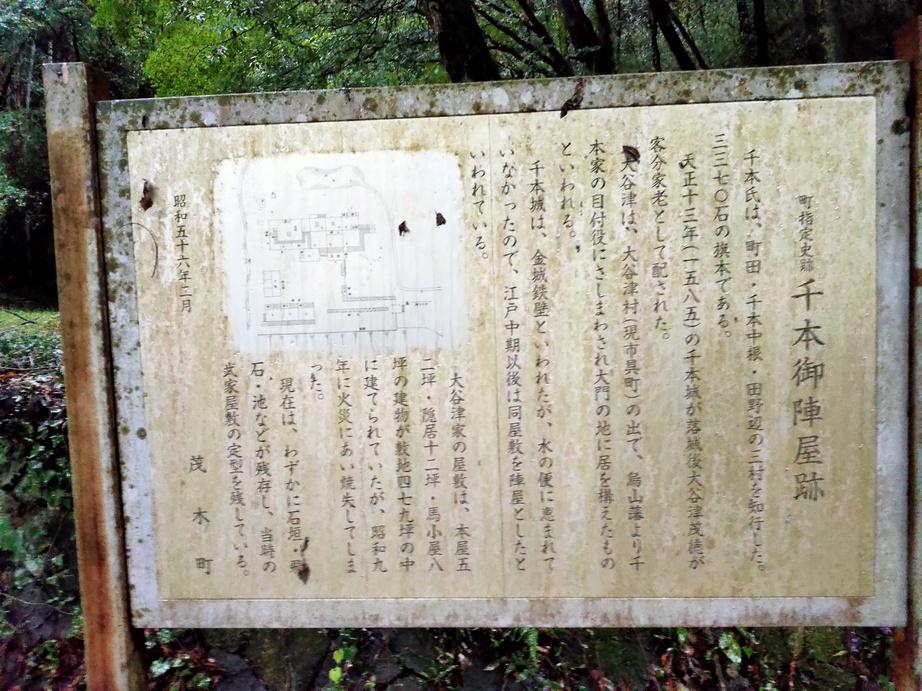 町指定史跡 千本御陣屋跡
千本氏は、町田・千本中根・田野辺の三村を知行した。
三三七〇石の旗本である。
天正十三年(一五八五)の千本城が落城後大谷津茂徳が
客分家老として配された。
大谷津は、大谷津村(現市貝町)の出で、烏山藩より千
本家の目付役にさしまわされ大門の地に居を構えたもの
といわれる。
千本城は、金城鉄壁といわれたが、水の便に恵まれて
いなかったので、江戸中期以後は同屋敷を陣屋としたと
いわれている。
大谷津家の屋敷は、本屋五
二坪・隠居十二坪・馬小屋八
坪の建物が敷地四七九坪の中
に建てられていたが、昭和九
年に火災にあい焼失してしま
った。
現在は、わずかに石垣・
石・池などが残存し、当時の
武家屋敷の定型を残している。
昭和五十六年二月
茂木町